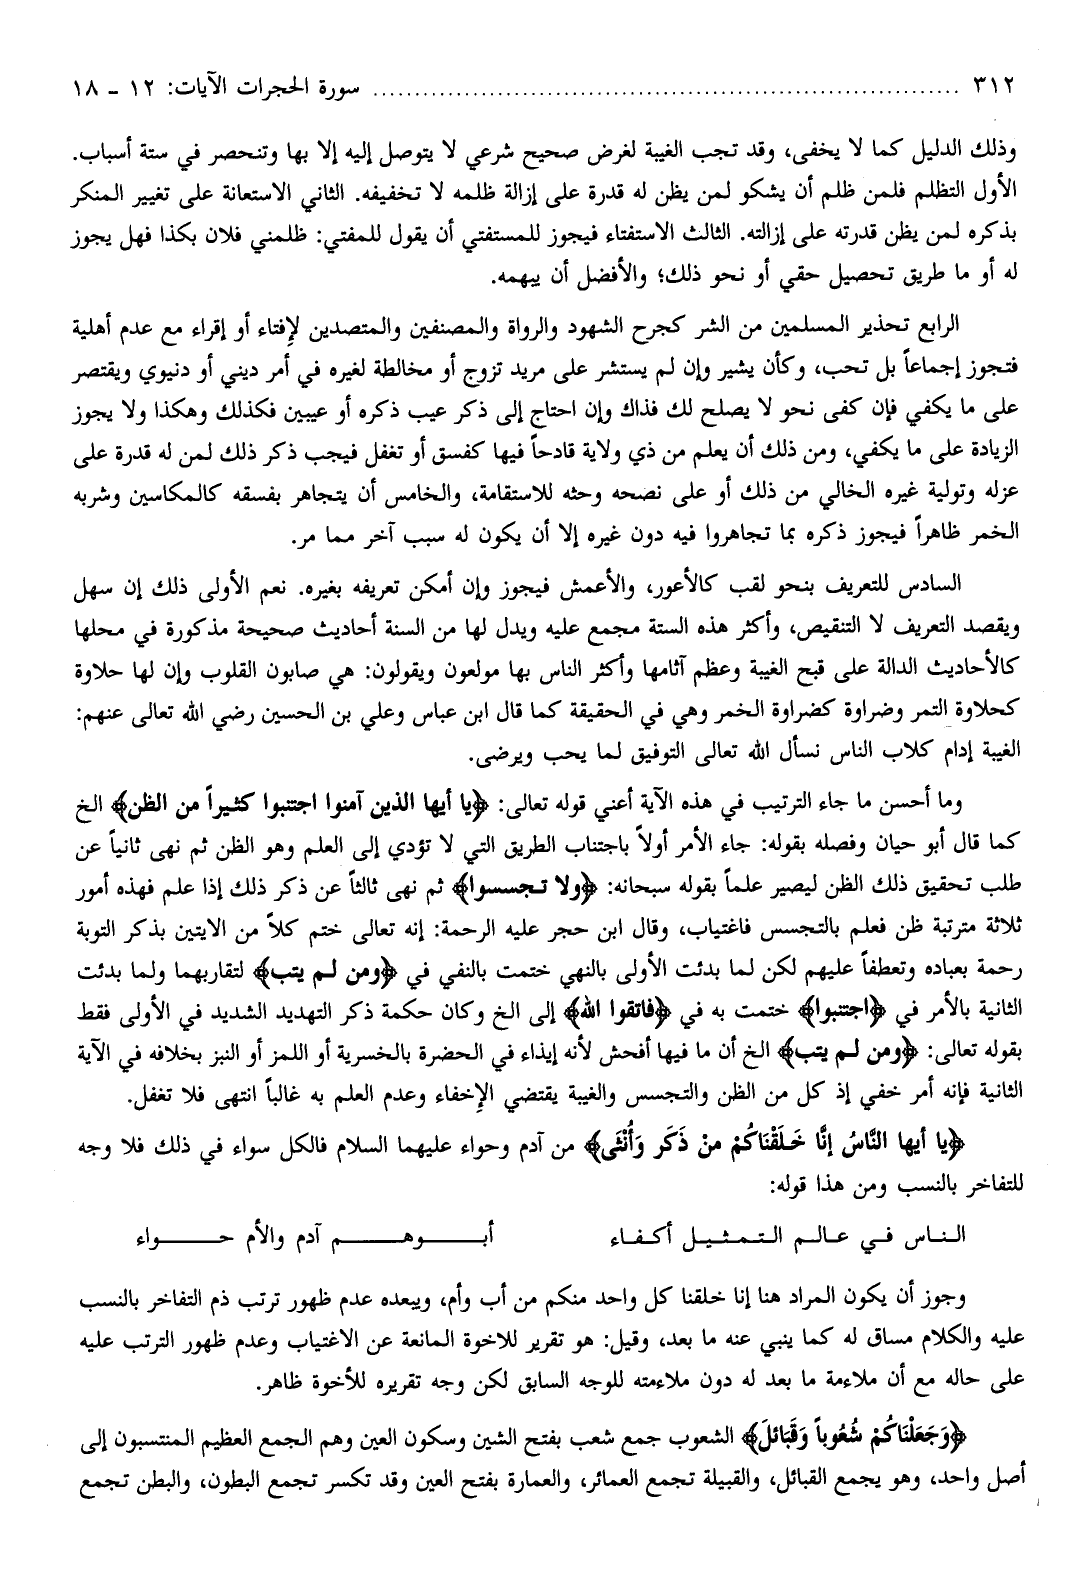 ٣١٢ .................................................................. سورة الحجرات الآيات: ١٢ - ١٨
وذلك الدليل كما لا يخفى، وقد تجب الغيبة لغرض صحيح شرعي لا يتوصل إليه إلا بها وتنحصر في ستة أسباب.
الأول التظلم فلمن ظلم أن يشكو لمن يظن له قدرة على إزالة ظلمه لا تخفيفه. الثاني الاستعانة على تغيير المنكر
بذكره لمن يظن قدرته على إزالته. الثالث الاستفتاء فيجوز للمستفتي أن يقول للمفتي: ظلمني فلان بكذا فهل يجوز
له أو ما طريق تحصيل حقي أو نحو ذلك؛ والأفضل أن يبهمه.
الرابع تحذير المسلمين من الشر كجرح الشهود والرواة والمصنفين والمتصدين لإفتاء أو إقراء مع عدم أهلية
فتجوز إجماعاً بل تحب، وكأن يشير وإن لم يستشر على مريد تزوج أو مخالطة لغيره في أمر ديني أو دنيوي ويقتصر
على ما يكفي فإن كفى نحو لا يصلح لك فذاك وإن احتاج إلى ذكر عيب ذكره أو عيبين فكذلك وهكذا ولا يجوز
الزيادة على ما يكفي، ومن ذلك أن يعلم من ذي ولاية قادحاً فيها كفسق أو تغفل فيجب ذكر ذلك لمن له قدرة على
عزله وتولية غيره الخالي من ذلك أو على نصحه وحثه للاستقامة، والخامس أن يتجاهر بفسقه كالمكاسين وشربه
الخمر ظاهراً فيجوز ذكره بما تجاهروا فيه دون غيره إلا أن يكون له سبب آخر مما مر.
السادس للتعريف بنحو لقب كالأعور، والأعمش فيجوز وإن أمكن تعريفه بغيره. نعم الأولى ذلك إن سهل
ويقصد التعريف لا التنقيص، وأكثر هذه الستة مجمع عليه ويدل لها من السنة أحاديث صحيحة مذكورة في محلها
كالأحاديث الدالة على قبح الغيبة وعظم آثامها وأكثر الناس بها مولعون ويقولون: هي صابون القلوب وإن لها حلاوة
كحلاوة التمر وضراوة كضراوة الخمر وهي في الحقيقة كما قال ابن عباس وعلي بن الحسين رضي الله تعالى عنهم:
الغيبة إدام كلاب الناس نسأل الله تعالى التوفيق لما يحب ويرضى.
وما أحسن ما جاء الترتيب في هذه الآية أعني قوله تعالى: ﴿يا أيها الذين آمنوا اجتنبوا كثيراً من الظن﴾ الخ
كما قال أبو حيان وفصله بقوله: جاء الأمر أولاً باجتناب الطريق التي لا تؤدي إلى العلم وهو الظن ثم نهى ثانياً عن
طلب تحقيق ذلك الظن ليصير علماً بقوله سبحانه: ﴿ولا تجسسوا﴾ ثم نهى ثالثاً عن ذكر ذلك إذا علم فهذه أمور
ثلاثة مترتبة ظن فعلم بالتجسس فاغتياب، وقال ابن حجر عليه الرحمة: إنه تعالى ختم كلاً من الايتين بذكر التوبة
رحمة بعباده وتعطفاً عليهم لكن لما بدئت الأولى بالنهي ختمت بالنفي في ﴿ومن لم يتب﴾ لتقاربهما ولما بدئت
الثانية بالأمر في ﴿اجتنبوا﴾ ختمت به في ﴿فاتقوا الله﴾ إلى الخ وكان حكمة ذكر التهديد الشديد في الأولى فقط
بقوله تعالى: ﴿ومن لم يتب﴾ الخ أن ما فيها أفحش لأنه إيذاء في الحضرة بالخسرية أو اللمز أو النبز بخلافه في الآية
الثانية فإنه أمر خفي إذ كل من الظن والتجسس والغيبة يقتضي الإخفاء وعدم العلم به غالباً انتهى فلا تغفل.
﴿يا أيها النَّاسُ إنَّا خَلَقْنَاكُمْ منْ ذَكَر وَأُنْثَى﴾ من آدم وحواء عليهما السلام فالكل سواء في ذلك فلا وجه
للتفاخر بالنسب ومن هذا قوله:
الناس في عالم التمثيل أكفاء أبوهم آدم والأم حواء
وجوز أن يكون المراد هنا إنا خلقنا كل واحد منكم من أب وأم، ويبعده عدم ظهور ترتب ذم التفاخر بالنسب
عليه والكلام مساق له كما ينبي عنه ما بعد، وقيل: هو تقرير للاخوة المانعة عن الاغتياب وعدم ظهور الترتب عليه
على حاله مع أن ملاءمة ما بعد له دون ملاءمته للوجه السابق لكن وجه تقريره للأخوة ظاهر.
﴿وَجَعَلْنَاكُمْ شُعُوباً وَقَبَائلَ﴾ الشعوب جمع شعب بفتح الشين وسكون العين وهم الجمع العظيم المنتسبون إلى
أصل واحد، وهو يجمع القبائل، والقبيلة تجمع العمائر، والعمارة بفتح العين وقد تكسر تجمع البطون، والبطن تجمع